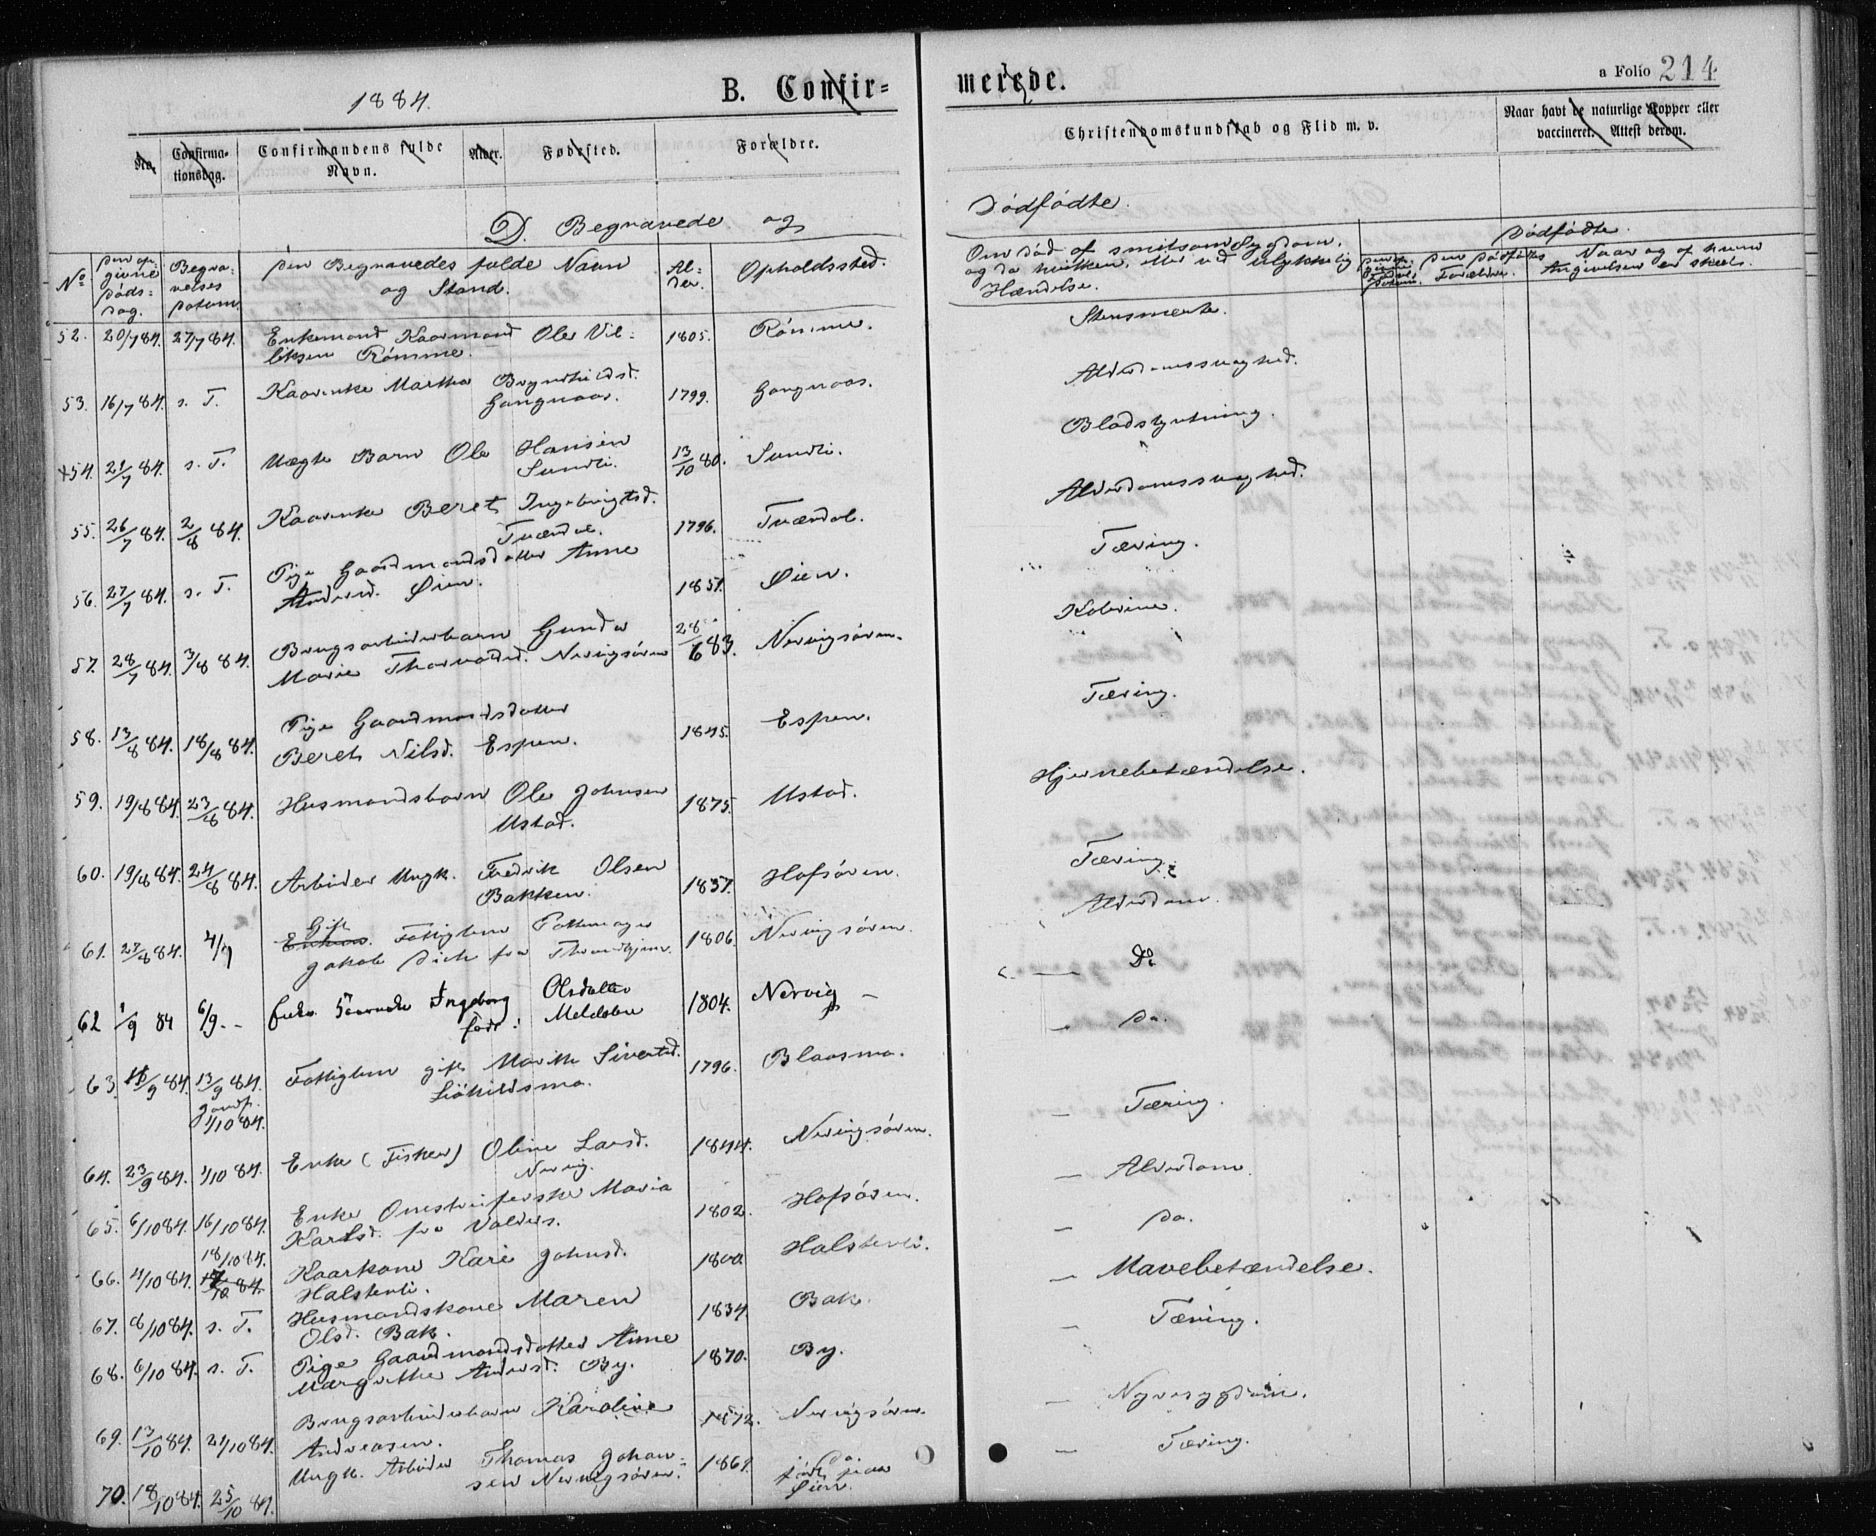 1884.
B. Confir=
merede.
a Folio 214
No.
Confirma-
tionsdag.
Confirmandens fulde
Navn.
Alder.
Fødested.
Forældre.
Christendomskundskab og Flid m. v.
Naar havt de naturlige Kopper eller
vaccineret. Attest derom.
D. Begravede og
Dødfødte.
No
Den op-
givne
Døds-
dag.
Begra-
velses
Datum.
Den Begravedes fulde Navn
og Stand.
Al-
der.
Opholdssted.
Om Død af smitsom Sygdom,
og da hvilken, eller ved ulykkelig
Hændelse.
Dødfødte.
Den Dødfødtes
Forældre.
Naar og af hvem
Angivelsen er skeet.
52. 20/7 84. 27/7 84. Enkemand Kaarmand Ole Vil-
liksen Rømme. 1805. Rømme. Stensmerte.
53. 16/7 84. s. T. Kaarenke Marthe Bryndhildsd.
Gangnaas. 1799. Gangnaas. Alderdomssvaghed.
54. 21/7 84. s. T. Uægte Barn Ole Hansen
Sundli. 13/10 80. Sundli. Blodstyrtning.
55. 26/7 84. 2/8 84. Kaarenke Beret Ingebrigtsd.
Tvændve. 1796. Alderdomssvaghed.
56. 27/7 84. s. T. Pige Gaardmandsdatter Anne
Andersd. Øien. 1851. Øien. Tæring.
57. 28/7 84. 3/8 84. Brugsarbeiderbarn Gunda
Marie Thorvaldsd. Nervigsøren 28/6 83. Nervigsøren. Kolerine.
58. 13/8 84. 18/8 84. Pige Gaardmandsdatter
Beret Nilsd. Espen. 1845. Espen. Tæring.
59. 19/8 84. 23/8 84. Husmandsbarn Ole Johnsen
Ustad. 1875. Ustad. Hjernebetændelse.
60. 19/8 84. 24/8 84. Arbeider Ungk. Fredrik Olsen
Bakken. 1837. Hofsøren. Tæring.
61. 27/8 84. 4/9 Gift
Fattiglem Pottemager
Jakob Dich fra Throndhjem. 1806. Nervigsøren. Alderdom.
62 1/9 84 6/9. - Ingeborg Olsdatter
født: 1804. Nervig - Do
63. 11/9 84. 13/9 84. Fattiglem gift Marith Sivertsd.
1796. Blaasmo. Do.
Jordf.
1/10 84.
64. 23/9 84. 1/10 84. Enke (Fisker) Oline Larsd.
Nervig. 1844. Nervigsøren. Tæring.
65. 6/10 84. 16/10 84. Enke Omstreiferske Maria
Karlsd. fra Valders. 1802. Hofsøren. Alderdom.
18/10 84.
66. 4/10 84. Kaarkone Kari Johnsd.
Halstenli. 1800. Halstenli. Do.
67. 8/10 84. s. T. Husmandskone Maren
Olsd. Bak. 1834. Bak. Mavebetændelse.
68. 6/10 84. s. T. Pige Gaardmandsdatter Anne
Margrethe Andersd. By. 1870. By. Tæring.
69. 13/10 84. 21/10 84. Brugsarbeiderbarn Karoline
Andreasen. 1872. Nervigsøren. Nyresygdom.
70. 18/10 84. 25/10 84. Ungk. Arbeider Thomas Johan-
sen Nervigsøren. 1861. Do.
født paa
Øien. Tæring.